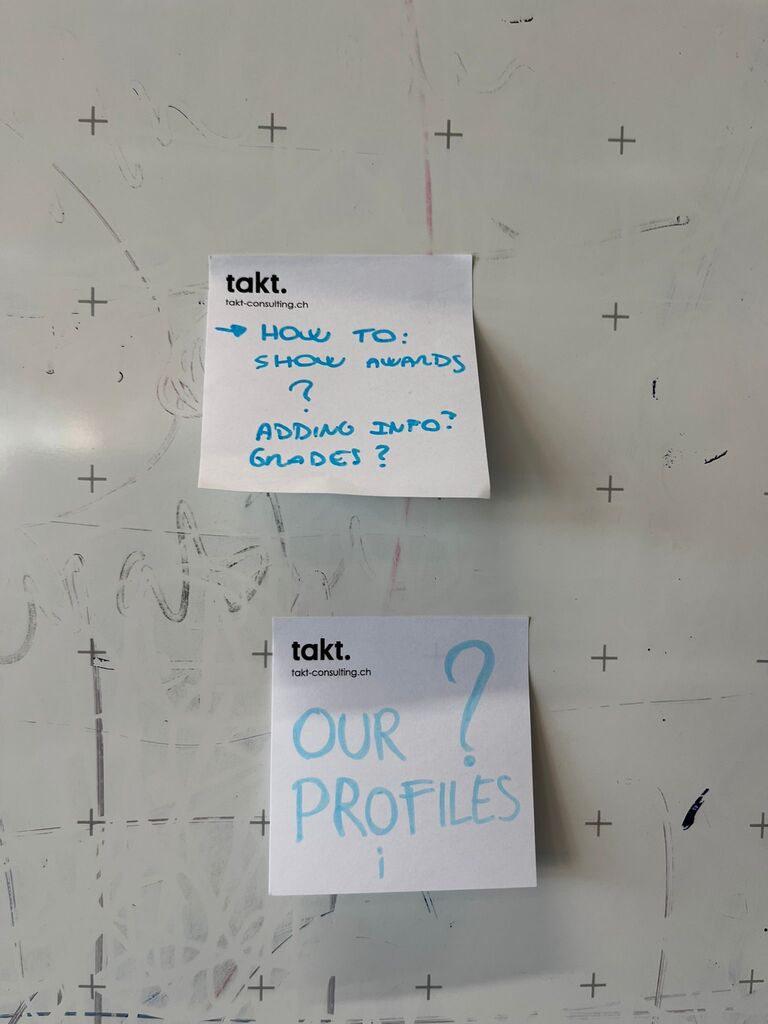 takt.
takt-consulting.ch
→ HOW TO:
SHOW AWARDS
?
ADDING INFO?
GRADES?
takt.
takt-consulting.ch
?
OUR
PROFILES
i